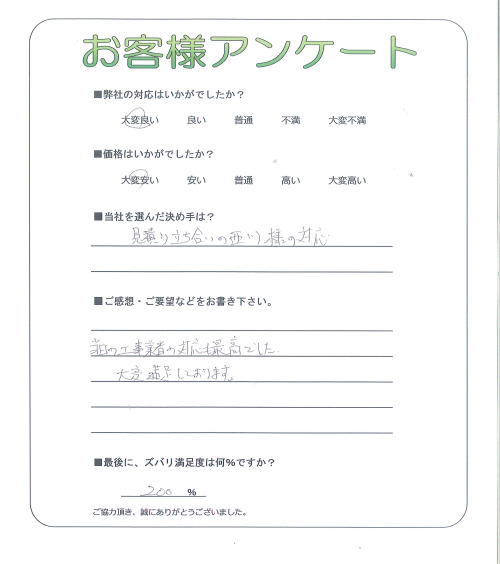 お客様アンケート
■弊社の対応はいかがでしたか？
大変良い 良い 普通 不満 大変不満
■価格はいかがでしたか？
大変安い 安い 普通 高い 大変高い
■当社を選んだ決め手は？
見積り立ち合いの西川様の対応
■ご感想・ご要望などをお書き下さい。
の工事業者の対応も最高でした
大変満足しております。
■最後に、ズバリ満足度は何％ですか？
200 %
ご協力頂き、誠にありがとうございました。